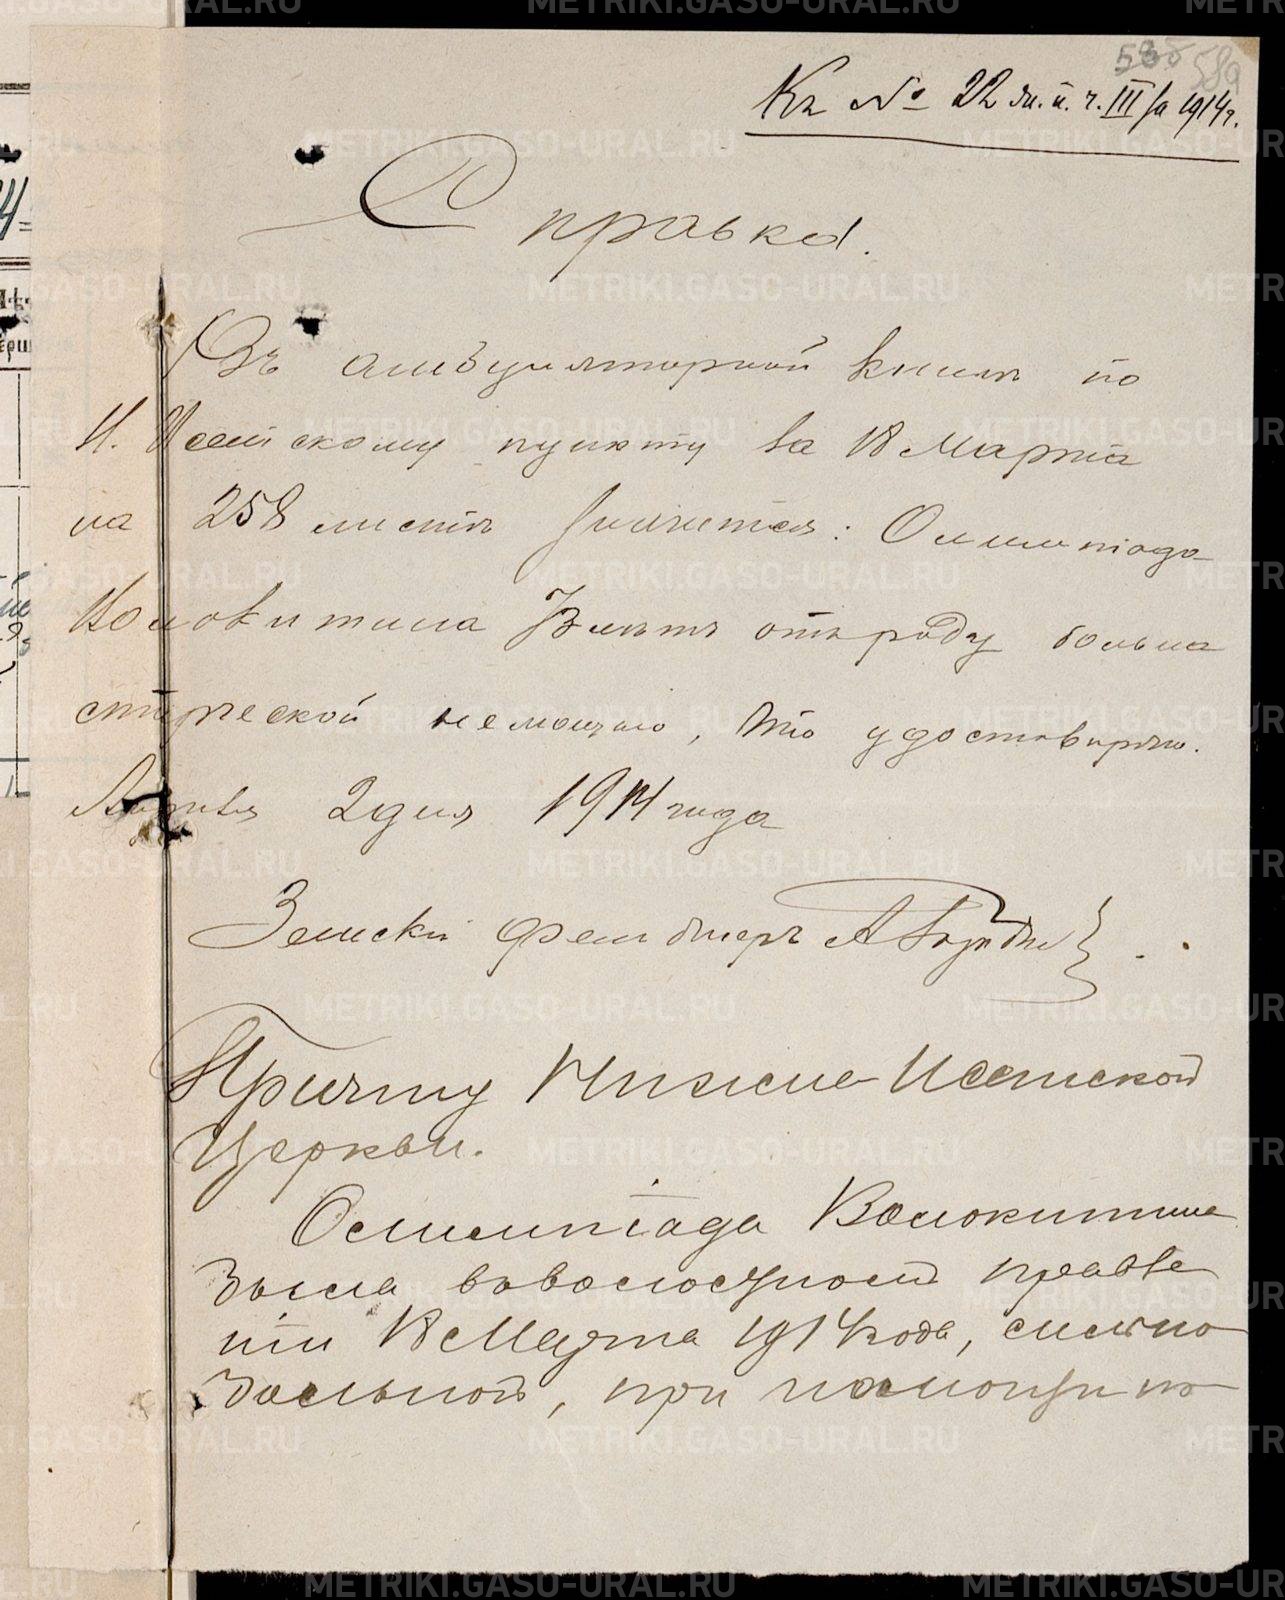 58об 589
Къ № 22 м. к. ч. III за 1914 г.
Справка.
Въ амбулаторной книгѣ по
Н. Исетскому пункту за 18 Марта
на 258 листѣ значится: Олимпіада
Волокитина лѣтъ отъ роду больна
старческой немощью, что удостовѣряю.
Апрѣля 2 дня 1914 года
Земскій фельдшеръ А
Причту Нижне-Исетской
Церкви.
Олимпіада Волокитина
была въ волостномъ правле
ніи 18 Марта 1914 года, слегка
больной, при помощи по
METRIKI.GASO-URAL.RU